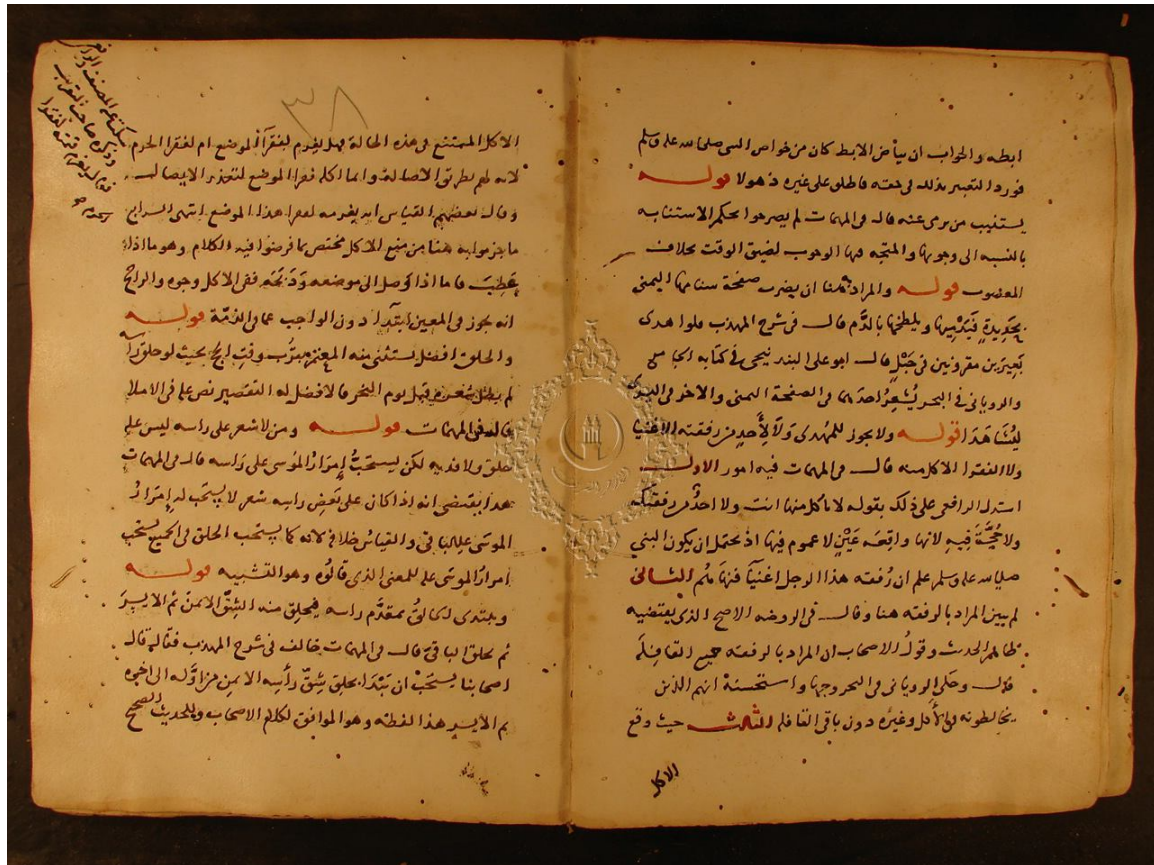 ابطه والجواب ان بياض الابط كان من خواص النبي صلى الله عليه وسلم
فورد التعبير بذلك في حقه فاطلق على غيره ذهولا قوله
يستنيب من يرمى عنه قال في المهمات لم يصرحوا بحكم الاستنابه
بالنسبه الى وجوبها والمتجه فيها الوجوب لضيق الوقت بخلاف
المعضوب قوله والمراد هنا ان يضرب صفحة سنامها اليمنى
بحديدة فيدميها ويلطخها بالدم قال في شرح المهذب فلو اهدى
بعيرين مقرونين في حبل قال ابو علي البندنيجي في كتابه الجامع
والروياني في البحر يشعر احدهما في الصفحة اليمنى والاخر في اليسرى
ليشاهدا قوله ولا يجوز للمهدى ولا لأحد من رفقته الاغنيا
ولا الفقرا الاكل منه قال في المهمات فيه امور الاول
استدل الرافعي على ذلك بقوله لا تاكل منها انت ولا احد من رفقتك
ولا حجة فيه لانها واقعه عين لا عموم فيها اذ يحتمل ان يكون النبي
صلى الله عليه وسلم علم ان رفقة هذا الرجل اغنيا فنهاهم الثاني
لم يبين المراد بالرفقه هنا وقال في الروضه الاصح الذي يقتضيه
ظاهر الحديث وقول الاصحاب ان المراد بالرفقه جميع القافله
قال وحكى الروياني في البحر وجها واستحسنه انهم الذين
يخالطونه في الأكل وغيره دون باقى القافله الثالث حيث وقع
الاكل
٣٨
الاكل الممتنع في هذه الحالة فهل يغرم لفقرآ الموضع ام لفقرا الحرم
لانه لهم بطريق الاصالة وانما اكله فقرا الموضع لتعذر الايصال
وقال بعضهم القياس انه يغرمه لفقرا هذا الموضع انتهى الرابع
ما جزموا به هنا من منع الاكل مختص بما فرضوا فيه الكلام وهو ما اذا
عطب فاما اذا وصل الى موضعه وذبحه ففي الاكل وجوه والراجح
انه يجوز في المعين ابتدا دون الواجب عما في الذمة قوله
والحلق افضل يستثنى منه المعتمر بقرب وقت الحج بحيث لو حلق رأسه
لم يطل شعره قبل يوم النحر فالافضل له التقصير نص عليه في الاملا
قاله في المهمات قوله ومن لا شعر على راسه ليس عليه
حلق ولا فديه لكن يستحب إمرار الموسى على راسه قال في المهمات
هذا يقتضى انه اذا كان على بعض راسه شعر لا يستحب له إمرار
الموسى على الباقي والقياس خلافه لانه كما يستحب الحلق في الجميع يستحب
امرار الموسى عليه للمعنى الذي قالوه وهو التشبيه قوله
ويبتدى الحالق بمقدم راسه فيحلق منه الشق الايمن ثم الايسر
ثم يحلق الباقي قال في المهمات خالف في شرح المهذب فقال قال
اصحابنا يستحب ان يبتدا بحلق شق رأسه الايمن من اوله الى اخره
ثم الايسر هذا لفظه وهو الموافق لكلام الاصحاب وللحديث الصحيح
سكت عنه المصنف
وذكره صاحب التقريب
فقال